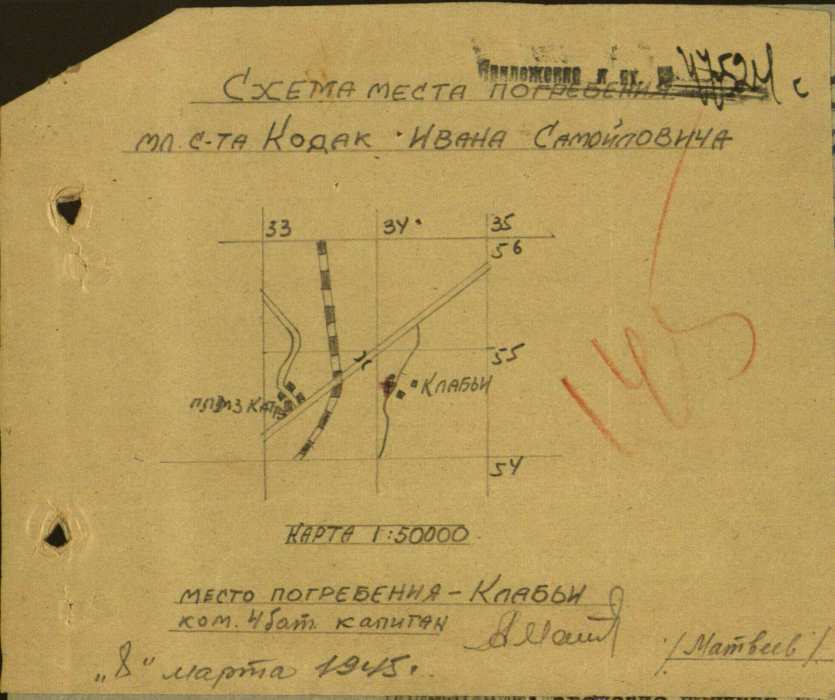 Приложение к вх. № 4752н с
Схема места погребения
мл. с-та Кодак Ивана Самойловича
33 34 35
56
55
Клабьи
54
145
Карта 1:50000
Место погребения - Клабьи
ком. 4 бат. капитан /Матвеев/
"8" марта 1945.